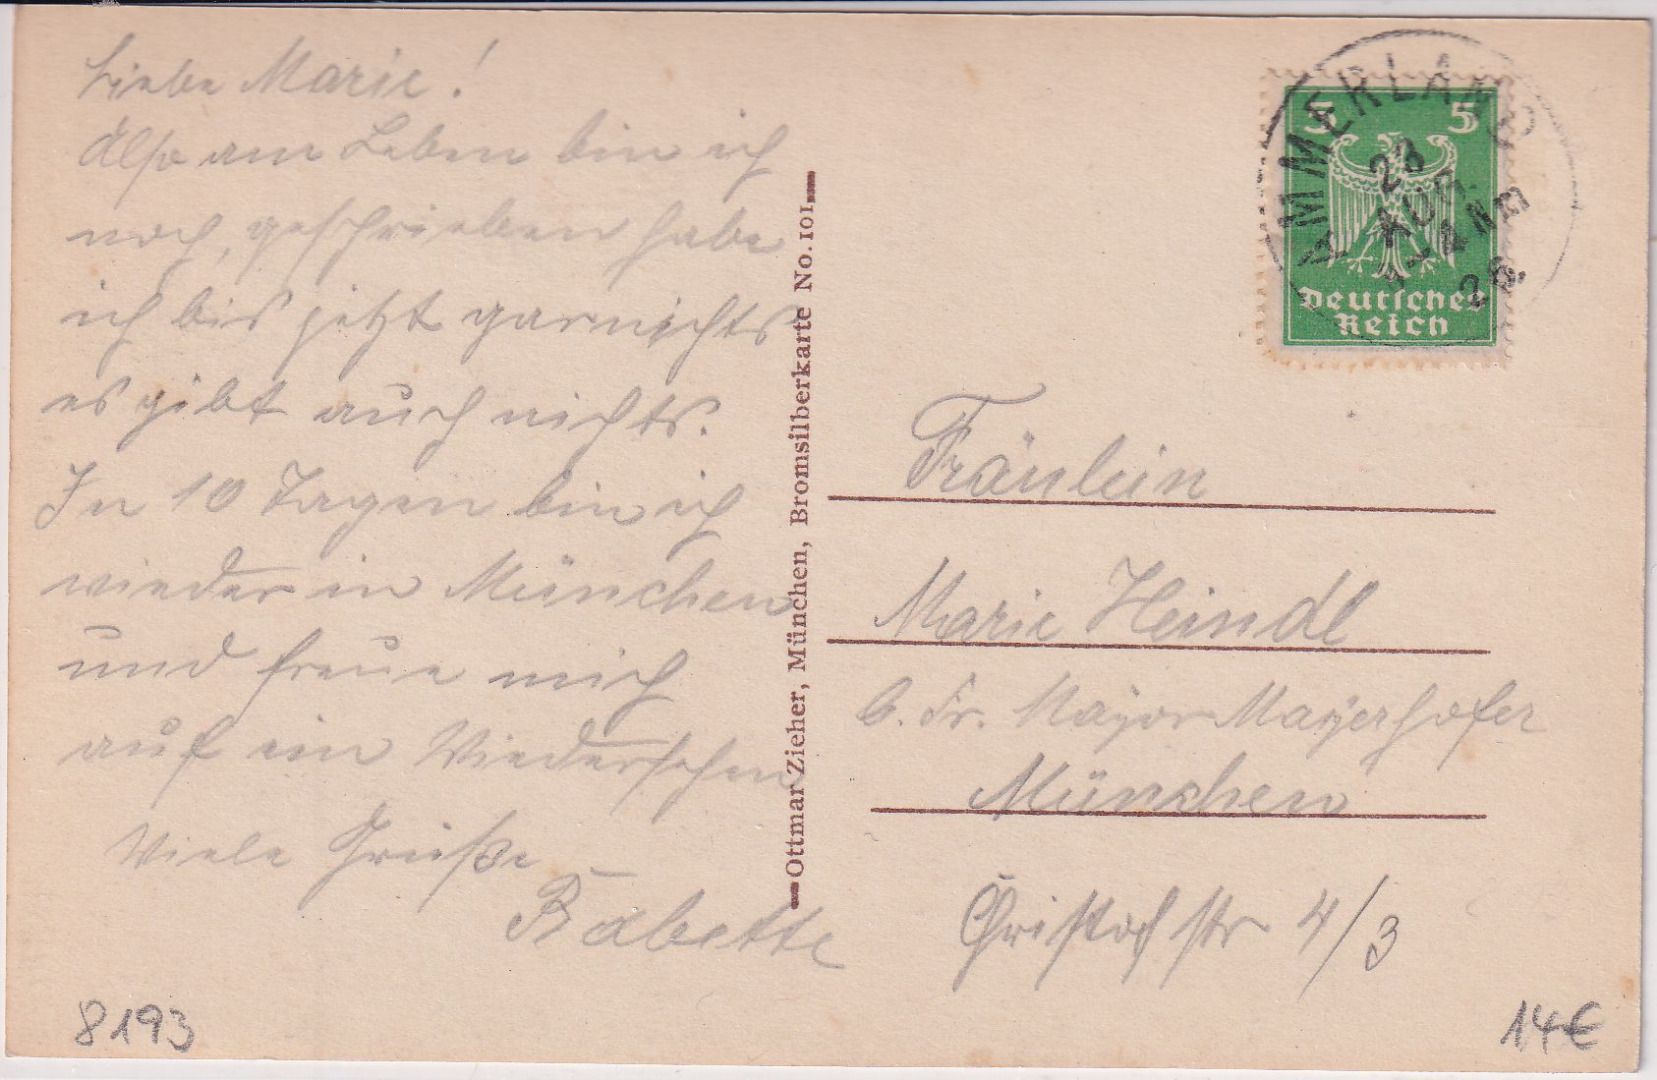 Liebe Marie!
Also am Leben bin ich
noch, geschrieben habe
ich bis jetzt garnichts
es gibt auch nichts.
In 10 Tagen bin ich
wieder in München
und freue mich
auf ein Wiedersehen
Viele Grüße
Babette
8193
Ottmar Zieher, München, Bromsilberkarte No. 101
AMMERLAND
23
AUG.
26.
5 5
Deutsches
Reich
Fräulein
Marie Heindl
b. Fr. Major Mayerhofer
München
Christofstr 4/3
14€